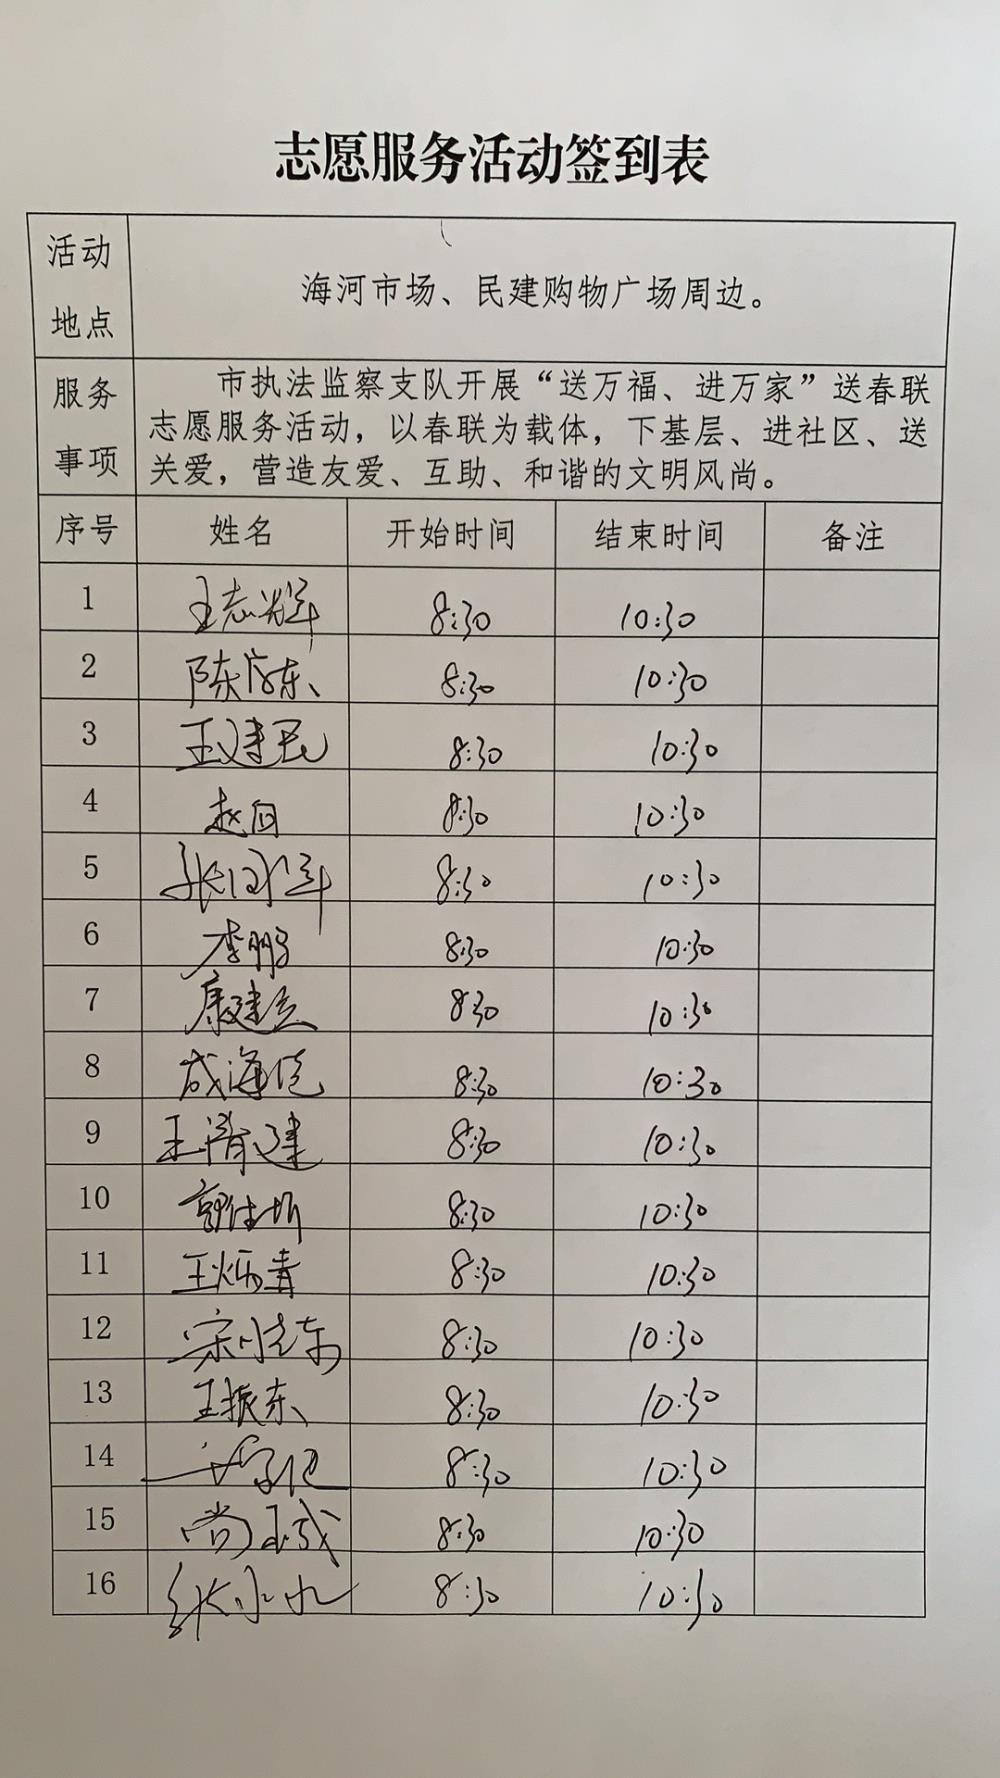 志愿服务活动签到表
活动地点 海河市场、民建购物广场周边。
服务事项 市执法监察支队开展“送万福、进万家”送春联
志愿服务活动，以春联为载体，下基层、进社区、送
关爱，营造友爱、互助、和谐的文明风尚。
序号 姓名 开始时间 结束时间 备注
1 王志辉 8:30 10:30
2 陈彦东 8:30 10:30
3 王建民 8:30 10:30
4 8:30 10:30
5 8:30 10:30
6 李鹏 8:30 10:30
7 康建立 8:30 10:30
8 8:30 10:30
9 8:30 10:30
10 8:30 10:30
11 王炳青 8:30 10:30
12 8:30 10:30
13 王振东 8:30 10:30
14 8:30 10:30
15 8:30 10:30
16 8:30 10:30